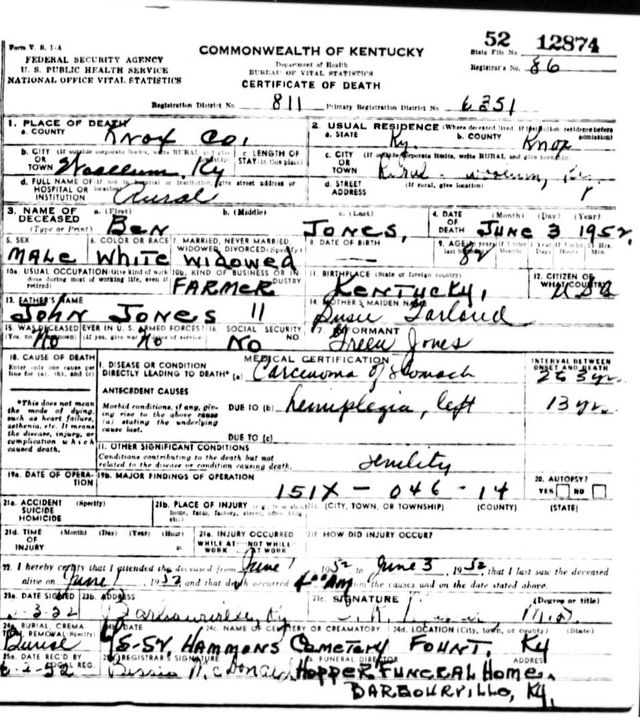 Form V. S. 1-A
FEDERAL SECURITY AGENCY
U. S. PUBLIC HEALTH SERVICE
NATIONAL OFFICE VITAL STATISTICS
COMMONWEALTH OF KENTUCKY
Department of Health
BUREAU OF VITAL STATISTICS
CERTIFICATE OF DEATH
52 12874
State File No.
Registrar's No. 86
Registration District No. 811 Primary Registration District No. 6351
1. PLACE OF DEATH
a. COUNTY Knox Co,
2. USUAL RESIDENCE (Where deceased lived. If institution residence before admission)
a. STATE Ky b. COUNTY Knox
b. CITY (If outside corporate limits, write RURAL and give
OR TOWN Woollum, Ky
c. LENGTH OF STAY (in this place)
c. CITY (If outside corporate limits, write RURAL and give township)
OR TOWN Rural - Woollum, Ky
d. FULL NAME OF (If not in hospital or institution, give street address or
HOSPITAL OR INSTITUTION Rural
d. STREET ADDRESS (If rural, give location)
3. NAME OF DECEASED (Type or Print)
a. (First) b. (Middle) c. (Last)
BEN JONES,
4. DATE OF DEATH (Month) (Day) (Year)
JUNE 3 1952
5. SEX MALE
6. COLOR OR RACE White
7. MARRIED, NEVER MARRIED, WIDOWED, DIVORCED (Specify) WIDOWED
8. DATE OF BIRTH —
9. AGE
10a. USUAL OCCUPATION (Give kind of work done during most of working life, even if retired)
10b. KIND OF BUSINESS OR INDUSTRY
FARMER
11. BIRTHPLACE (State or foreign country)
KENTUCKY,
12. CITIZEN OF WHAT COUNTRY
USA
13. FATHER'S NAME
JOHN JONES
14. MOTHER'S MAIDEN NAME
Susie
15. WAS DECEASED EVER IN U. S. ARMED FORCES?
No No
16. SOCIAL SECURITY
NO
17. INFORMANT
Green Jones
18. CAUSE OF DEATH
Enter only one cause per line for (a), (b), and (c)
MEDICAL CERTIFICATION
INTERVAL BETWEEN ONSET AND DEATH
I. DISEASE OR CONDITION
DIRECTLY LEADING TO DEATH* (a) Carcinoma of Stomach
*This does not mean the mode of dying, such as heart failure, asthenia, etc. It means the disease, injury, or complication which caused death.
ANTECEDENT CAUSES
Morbid conditions, if any, giving rise to the above cause (a) stating the underlying cause last.
DUE TO (b) hemiplegia, left 13 yr.
DUE TO (c)
II. OTHER SIGNIFICANT CONDITIONS
Conditions contributing to the death but not related to the disease or condition causing death.
Senility
19a. DATE OF OPERATION
19b. MAJOR FINDINGS OF OPERATION
151X - 046 - 14
20. AUTOPSY?
YES NO
21a. ACCIDENT SUICIDE HOMICIDE (Specify)
21b. PLACE OF INJURY
(CITY, TOWN, OR TOWNSHIP) (COUNTY) (STATE)
21d. TIME OF INJURY (Month) (Day) (Year) (Hour)
21e. INJURY OCCURRED
WHILE AT WORK NOT WHILE AT WORK
21f HOW DID INJURY OCCUR?
22. I hereby certify that I attended the deceased from June 1 1952 to June 3, 1952, that I last saw the deceased
alive on June 1, 1952, and that death occurred 4:00 Am, the causes and on the date stated above.
23a. DATE SIGNED 23b. ADDRESS 23c. SIGNATURE (Degree or title)
Barbourville, Ky
24a. BURIAL, CREMATION, REMOVAL (Specify)
Burial
DATE
24c. NAME OF CEMETERY OR CREMATORY
24d. LOCATION (City, town, or county) (State)
HAMMONS CEMETERY FOUNT, KY
25a. DATE REC'D BY LOCAL REG.
REGISTRAR'S SIGNATURE
Bessie McDonald
FUNERAL DIRECTOR ADDRESS
HOPPER FUNERAL HOME.
BARBOURVILLE, KY.